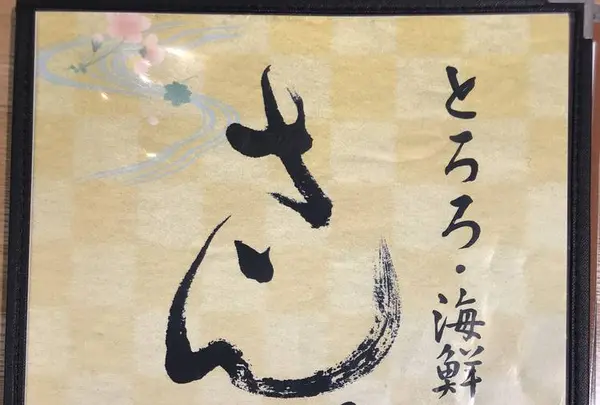 とろろ・海鮮
さん